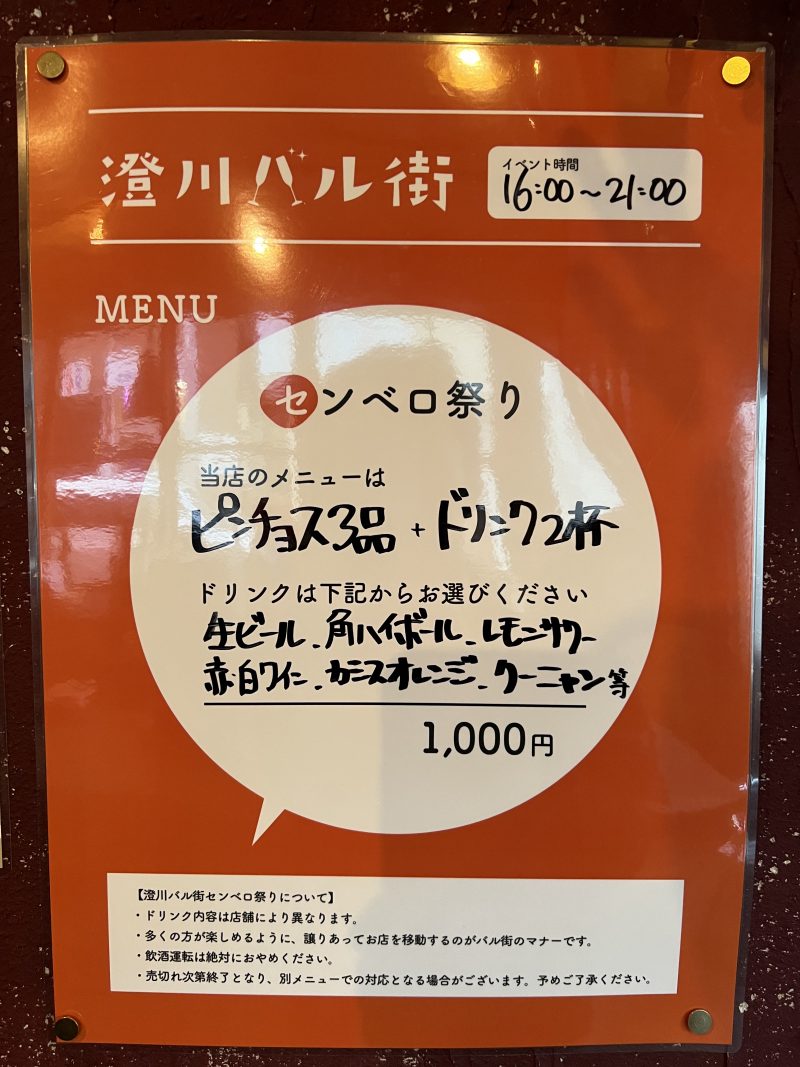 澄川バル街
イベント時間
16:00〜21:00
MENU
センベロ祭り
当店のメニューは
ピンチョス3品 + ドリンク2杯
ドリンクは下記からお選びください
生ビール、角ハイボール、レモンサワー
赤・白ワイン、カシスオレンジ、クーニャン等
1,000円
【澄川バル街センベロ祭りについて】
・ドリンク内容は店舗により異なります。
・多くの方が楽しめるように、譲りあってお店を移動するのがバル街のマナーです。
・飲酒運転は絶対におやめください。
・売切れ次第終了となり、別メニューでの対応となる場合がございます。予めご了承ください。